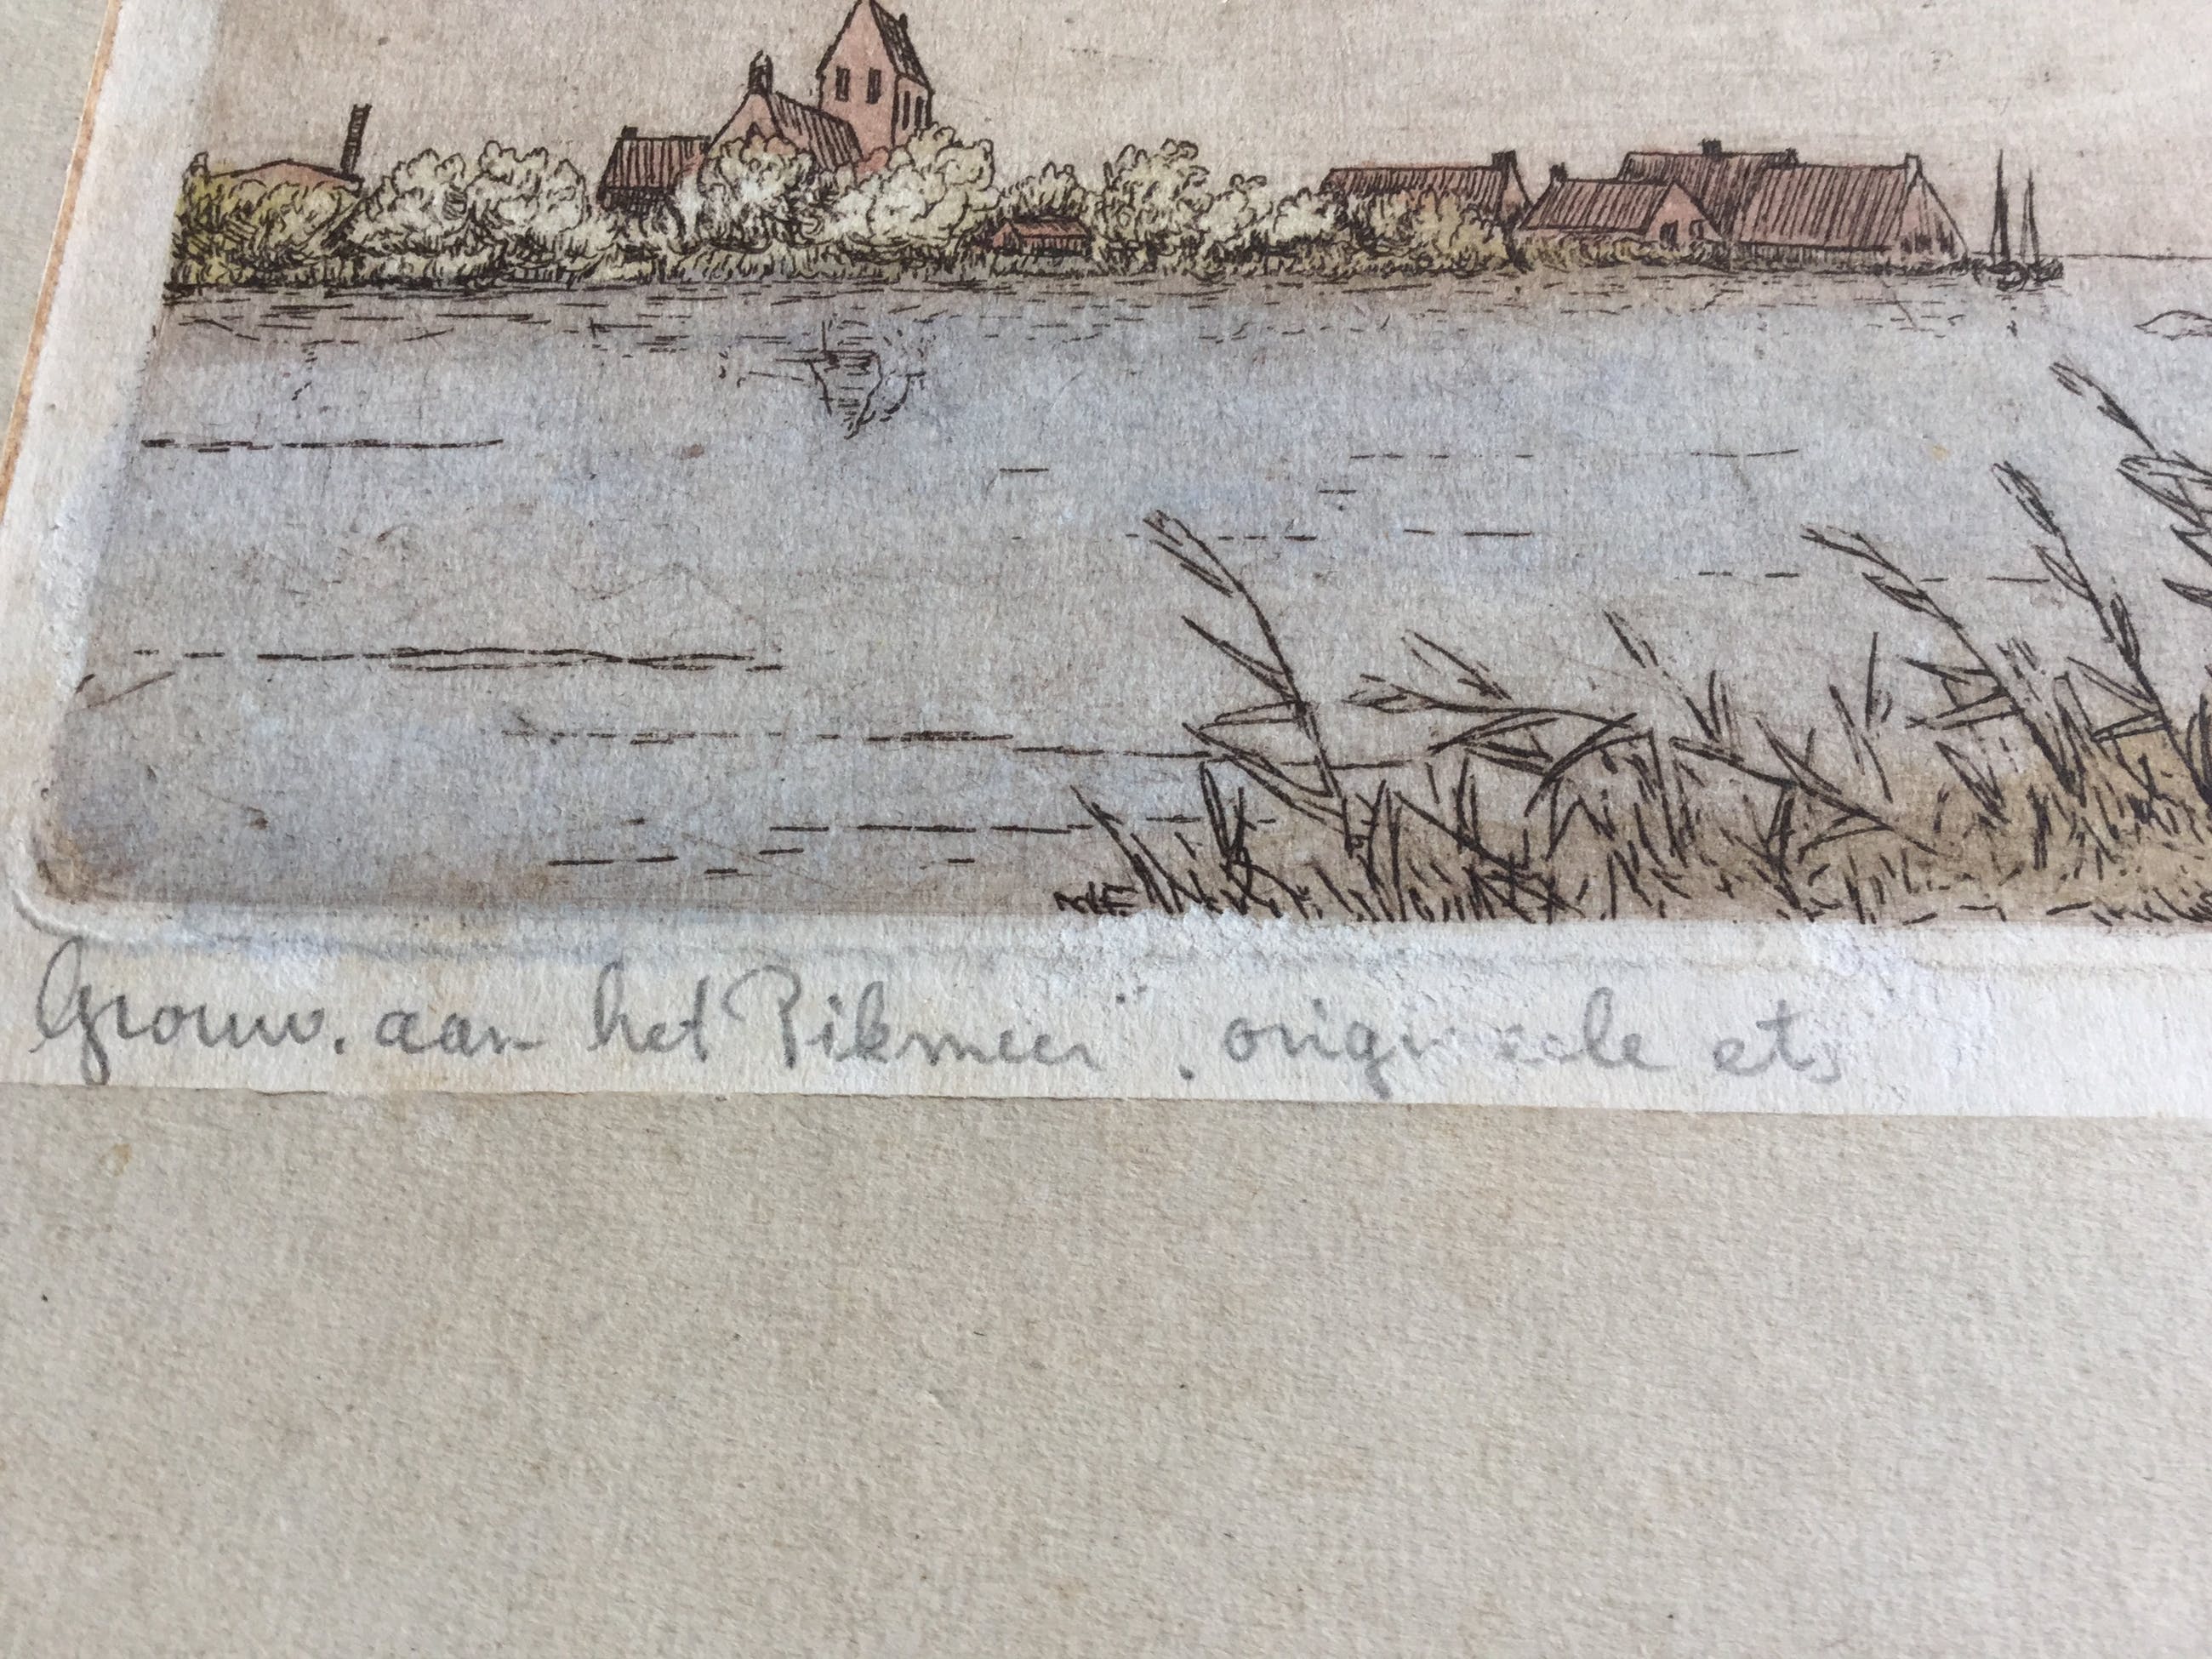 Grouw. aan het Pikmeer". originele ets